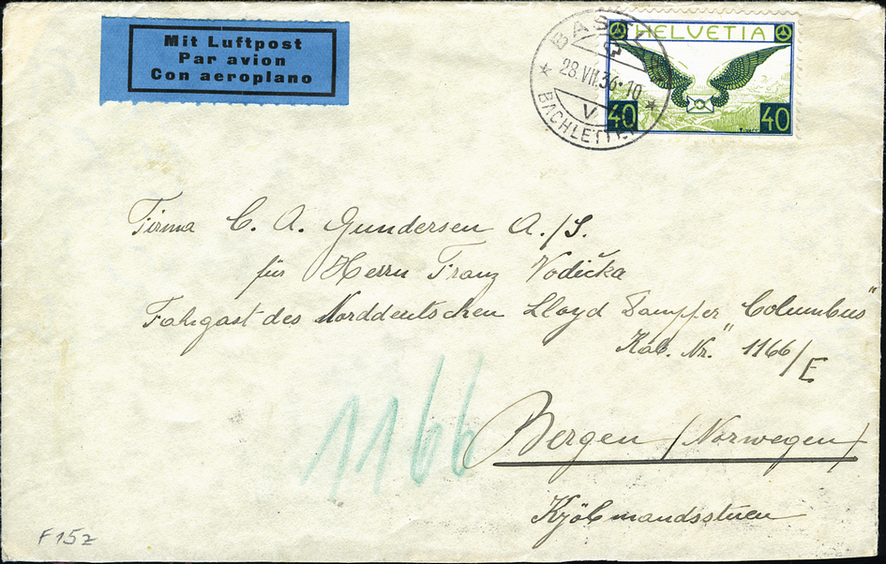 Mit Luftpost
Par avion
Con aeroplano
HELVETIA
40 40
BASEL
28.VII.36-10
V
BACHLETTEN
Firma C. A. Gundersen A./S.
für Herrn Franz Vodička
Fahrgast des Norddeutschen Lloyd Dampfer "Columbus"
Kab. Nr. 1166/E
1166
Bergen (Norwegen)
Kjöbmandsstuen
F15z